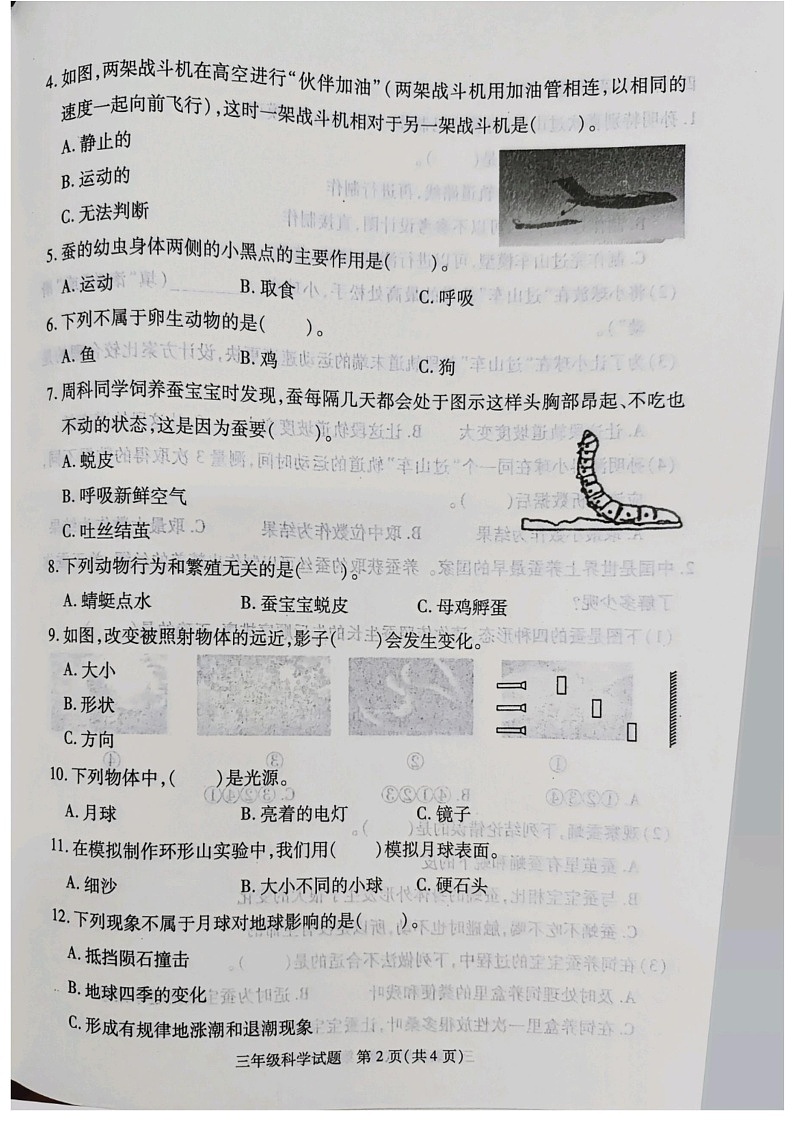 4. 如图,两架战斗机在高空进行“伙伴加油”(两架战斗机用加油管相连,以相同的
速度一起向前飞行),这时一架战斗机相对于另一架战斗机是(    )。
A. 静止的
B. 运动的
C. 无法判断
5. 蚕的幼虫身体两侧的小黑点的主要作用是(    )。
A. 运动 B. 取食 C. 呼吸
6. 下列不属于卵生动物的是(    )。
A. 鱼 B. 鸡 C. 狗
7. 周科同学饲养蚕宝宝时发现,蚕每隔几天都会处于图示这样头胸部昂起、不吃也
不动的状态,这是因为蚕要(    )。
A. 蜕皮
B. 呼吸新鲜空气
C. 吐丝结茧
8. 下列动物行为和繁殖无关的是(    )。
A. 蜻蜓点水 B. 蚕宝宝蜕皮 C. 母鸡孵蛋
9. 如图,改变被照射物体的远近,影子(    )会发生变化。
A. 大小
B. 形状
C. 方向
10. 下列物体中,(    )是光源。
A. 月球 B. 亮着的电灯 C. 镜子
11. 在模拟制作环形山实验中,我们用(    )模拟月球表面。
A. 细沙 B. 大小不同的小球 C. 硬石头
12. 下列现象不属于月球对地球影响的是(    )。
A. 抵挡陨石撞击
B. 地球四季的变化
C. 形成有规律地涨潮和退潮现象
三年级科学试题 第 2 页(共 4 页)